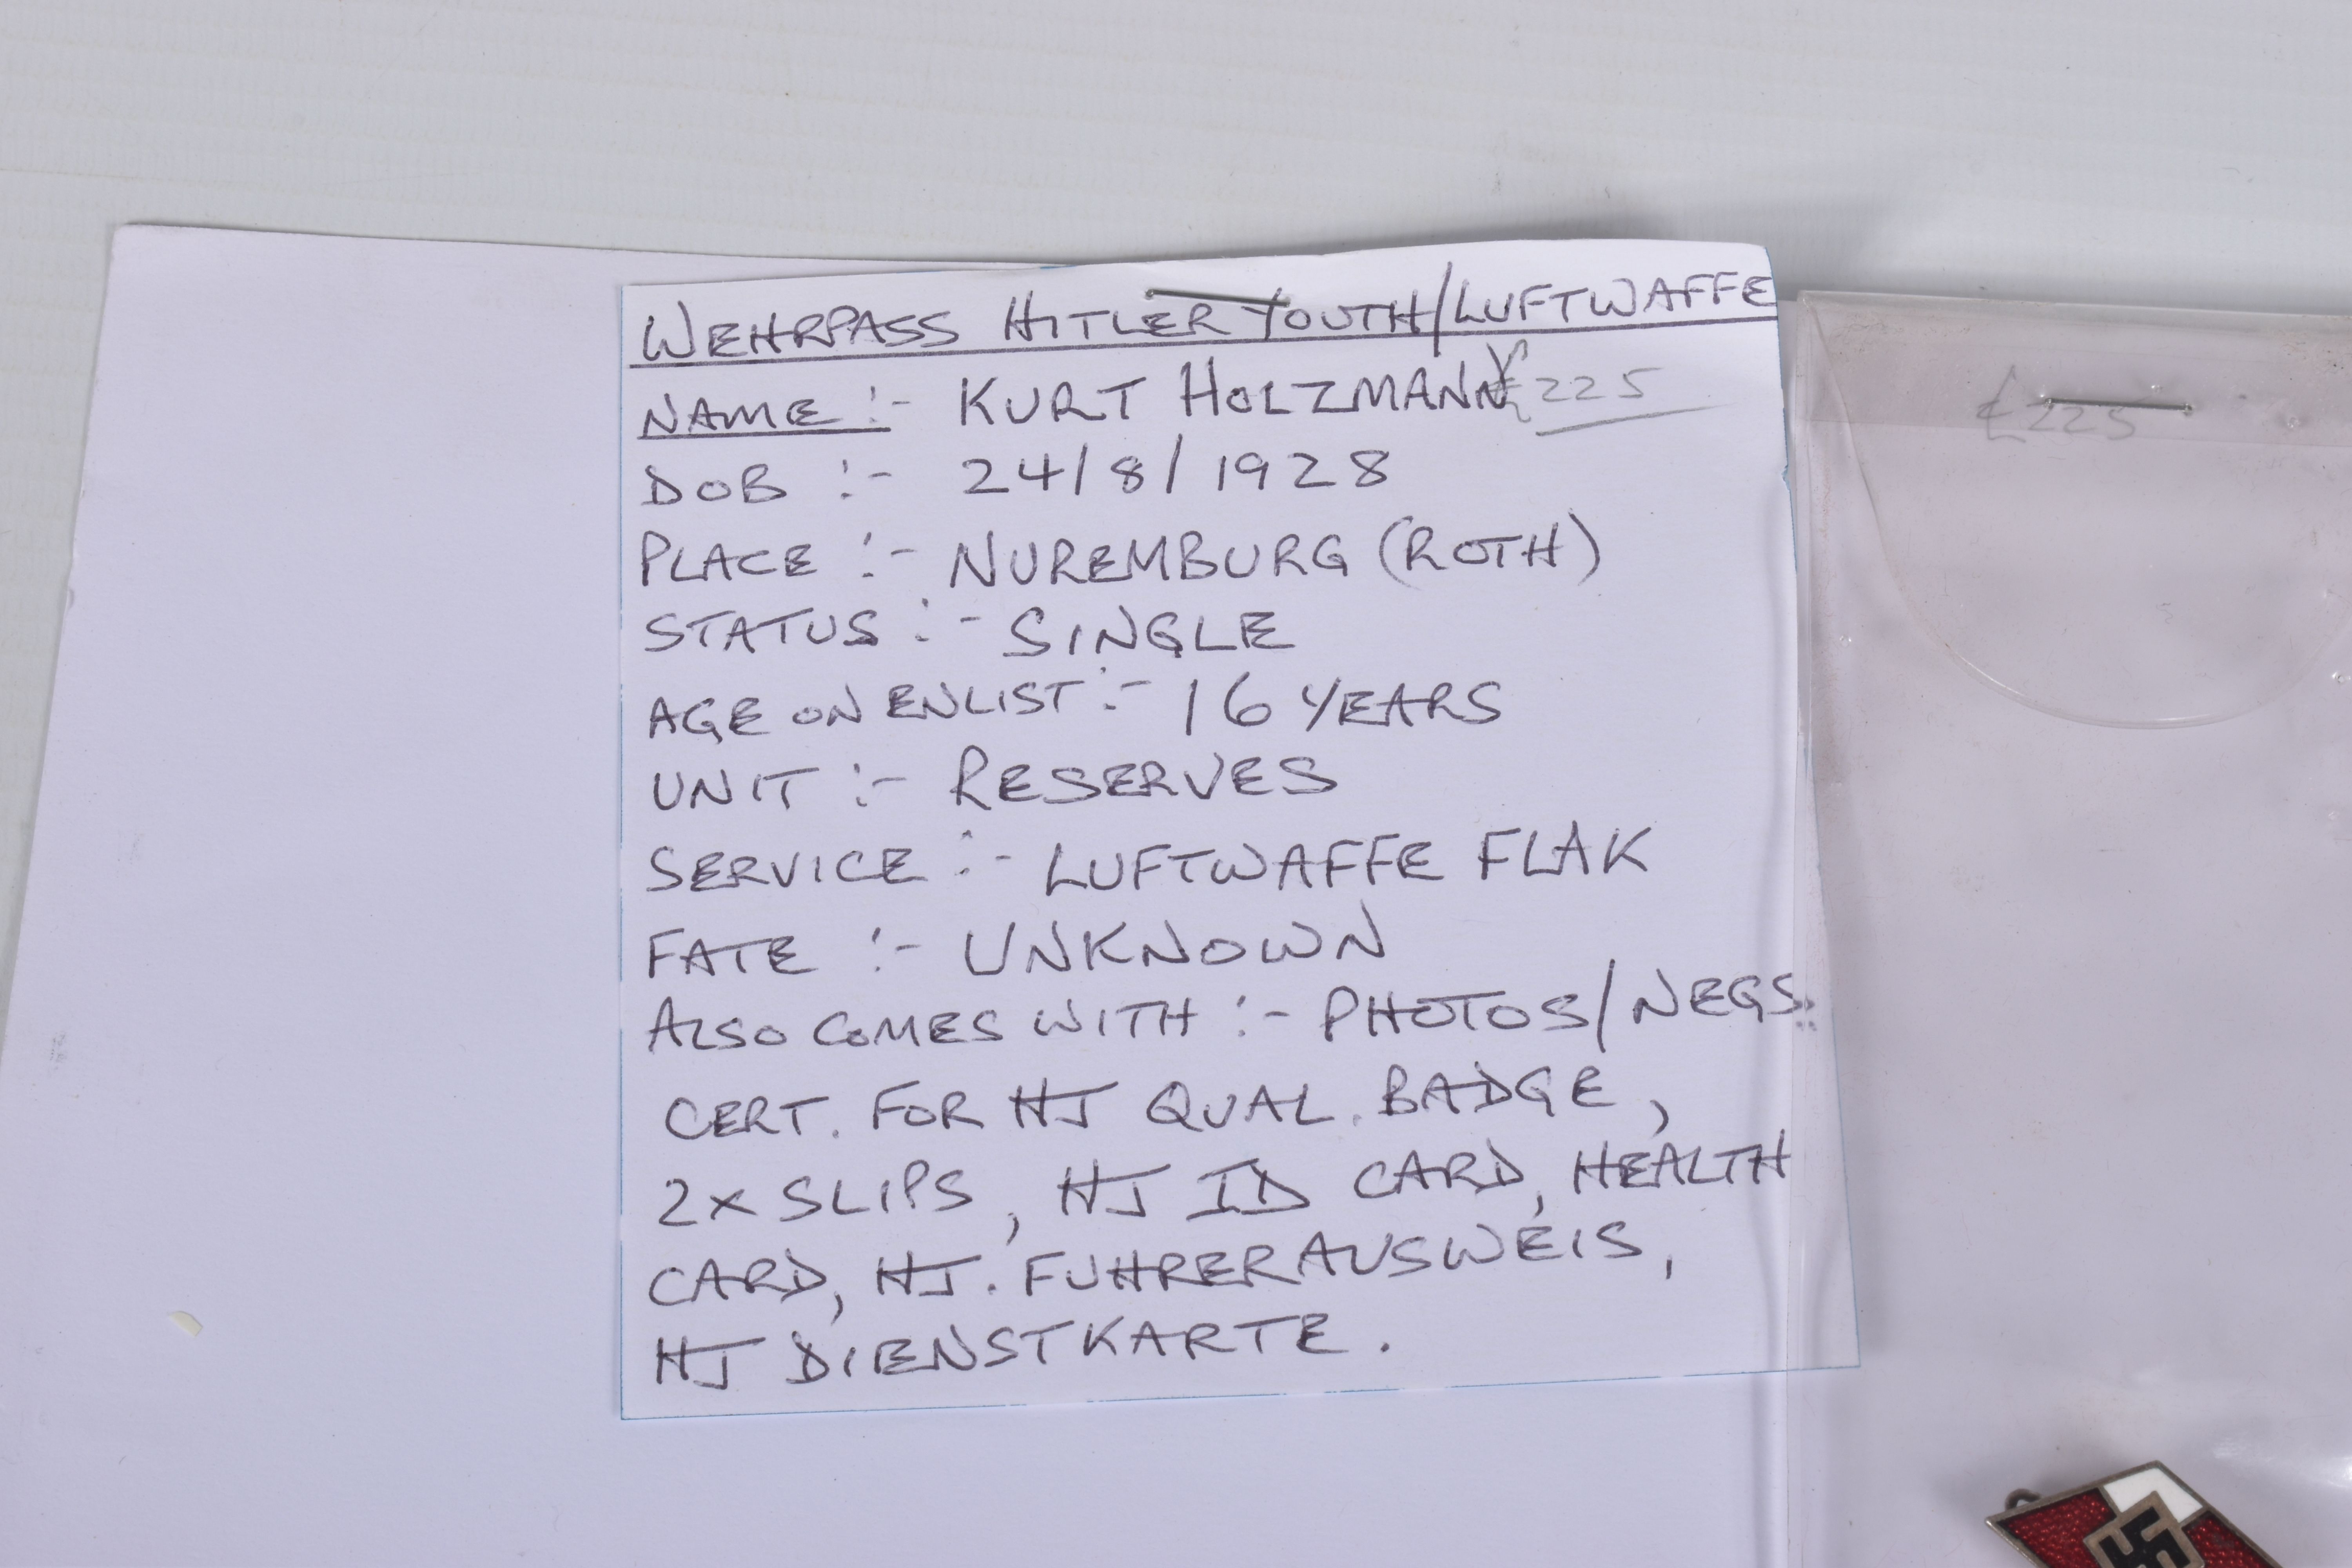 WEHRPASS HITLER YOUTH/LUFTWAFFE
NAME :- KURT HOLZMANN £225
DOB :- 24/8/1928
PLACE :- NUREMBURG (ROTH)
STATUS :- SINGLE
AGE ON ENLIST :- 16 YEARS
UNIT :- RESERVES
SERVICE :- LUFTWAFFE FLAK
FATE :- UNKNOWN
ALSO COMES WITH :- PHOTOS/NEGS.
CERT. FOR HJ QUAL. BADGE,
2x SLIPS, HJ ID CARD, HEALTH
CARD, HJ. FUHRERAUSWEIS,
HJ DIENSTKARTE.
£225